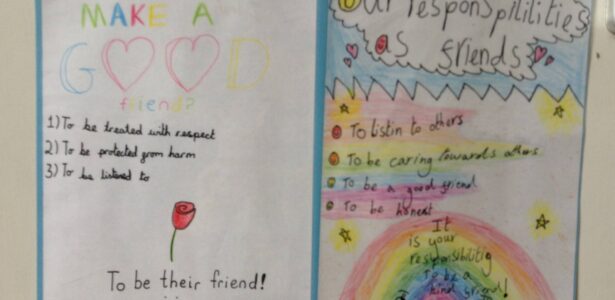 MAKE A
GOOD
friend?
1) To be treated with respect
2) To be protected from harm
3) To be listened to
To be their friend!
Our responspilities
as friends
To listin to others
To be caring towards others
To be a good friend
To be honest
It
is your
responsibilitiy
To be a
kind friend!